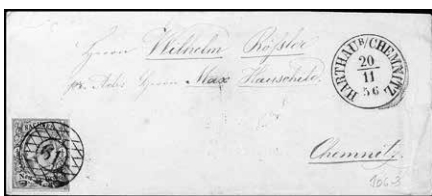 Herrn Wilhelm Rößler
pr. Adr. Herrn Max Hauschild.
HARTHAU B/CHEMNITZ
20
11
56
SACHSEN
Chemnitz
106-3